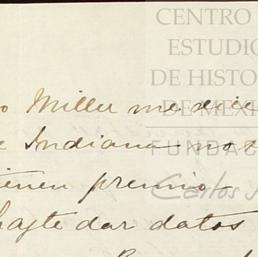 CENTRO
ESTUDIO
DE HISTO
DE MÉXI
FUNDAC
Carlos S
o Miller me dice
e Indiana no
ienen premio
hajte dar datos